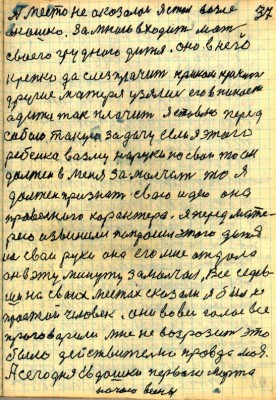 37
А место не оказалось я стал возле
окошко. За мною входит мать
своего грудного дитя. оно в него
крепко да слез плачит криком кричит
другие матеря узялись его пикать
а дитя так плачит я ставлю перед
собою такую задачу если я этого
ребенка возму на руки посвои то он
должен в меня замолчать то я
должен признать свою идею она
правенного характера. я перед мате-
рею извинили попросил этого дитя
на свои руки она его мне отдала
он в эту минуту замолчал, все седев-
ши на своих местах сказали я был хо
простой человек. они во веи голос все
проговорили мне не возрозит это
было действително правда моя.
А сегодня сдошки первого марта
начало весны